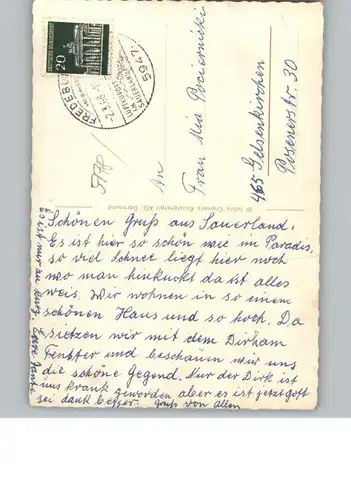 20
5947
FREDEBU
LUFTKURORT
IM
SAUERLAND
An
Frau Mia Pociernicki
465 Gelsenkirchen
Posenerstr. 30
Schönen Gruß aus Sauerland.
Es ist hier so schön wie im Paradis,
so viel Schnee liegt hier noch
wo man hinkuckt da ist alles
weis. Wir wohnen in so einem
schönen Haus und so hoch. Da
sietzen wir mit dem
Fenster und beschauen wir uns
die schöne Gegend. Nur der Dirk ist
uns krank geworden aber es ist jetzt gott
sei dank besser. Gruß von allen
es ist nur zu kurz. Eure Tante